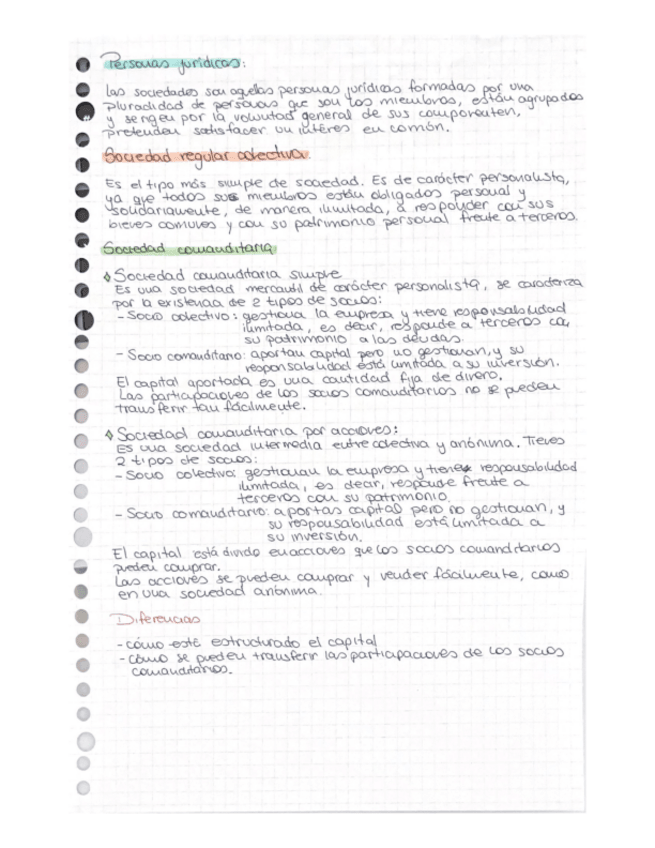 Personas jurídicas:
Las sociedades son aquellas personas jurídicas formadas por una
pluralidad de personas que son los miembros, están agrupados
y se rigeu por la voluntad general de sus componenten,
pretenden satisfacer un interés en común.
Sociedad regular colectiva
Es el tipo más simple de sociedad. Es de carácter personalista,
ya que todos sus miembros están obligados personal y
solidariamente, de manera ilimitada, a responder con sus
bienes comunes y con su patrimonio personal frente a terceros.
Sociedad comanditaria
◊ Sociedad comanditaria simple
Es una sociedad mercantil de carácter personalista, se caracteriza
por la existencia de 2 tipos de socios:
- Socio colectivo: gestiona la empresa y tiene responsabilidad
ilimitada, es decir, responde a terceros con
su patrimonio a las deudas.
- Socio comanditario: aportan capital pero no gestionan, y su
responsabilidad está limitada a su inversión.
El capital aportada es una cantidad fija de dinero.
Las participaciones de los socios comanditarios no se pueden
transferir tan fácilmente.
◊ Sociedad comanditaria por acciones:
Es una sociedad intermedia entre colectiva y anónima. Tienes
2 tipos de socios:
- Socio colectivo: gestionan la empresa y tiene responsabilidad
ilimitada, es decir, responde frente a
terceros con su patrimonio.
- Socio comanditario: aportas capital pero no gestionan, y
su responsabilidad está limitada a
su inversión.
El capital está divido en acciones que los socios comanditarios
pueden comprar.
Las acciones se pueden comprar y vender fácilmente, como
en una sociedad anónima.
Diferencias
- cómo está estructurado el capital
- Cómo se pueden transferir las participaciones de los socios
comanditarios.